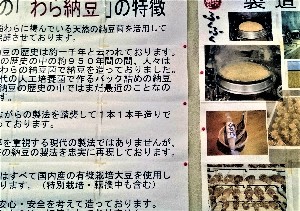 の「わら納豆」の特徴
製造
ふくふく
わらに棲んでいる天然の納豆菌を活用して
させております。
豆の歴史は約一千年と云われております。
の歴史の中の約950年間の間、人々は
わらの納豆菌で納豆を造っておりました。
代の人工培養菌で作るパック詰めの納豆
納豆の歴史の中ではまだ最近のことなの
す。
ながらの製法を踏襲して1本1本手造りで
っております。
を重視する現代の製法ではありませんが、
の納豆の製法を忠実に再現しております。
はすべて国内産の有機栽培大豆を使用し
ります。(特別栽培・転換中も含む)
安心・安全を考えて造っております。